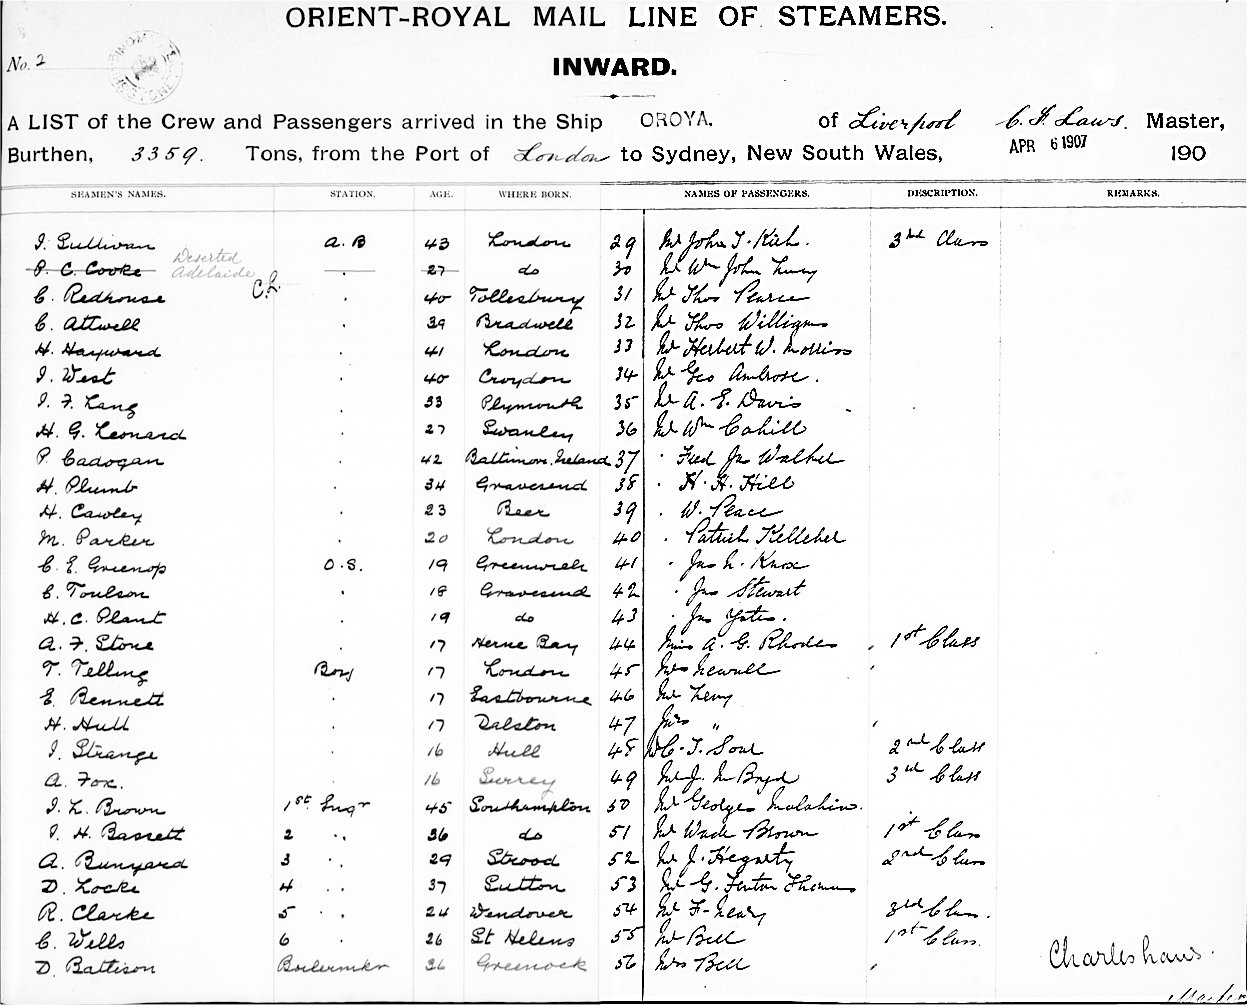 ORIENT-ROYAL MAIL LINE OF STEAMERS.
No. 2
INWARD.
A LIST of the Crew and Passengers arrived in the Ship OROYA. of Liverpool C. F. Laws. Master,
Burthen, 3359. Tons, from the Port of London to Sydney, New South Wales, APR 6 1907 190
SEAMEN'S NAMES. STATION. AGE. WHERE BORN. NAMES OF PASSENGERS. DESCRIPTION. REMARKS.
J. Sullivan A.B 43 London 29 Mr John T. 3rd Class
P. C. Cooke Deserted Adelaide 27 do 30 Mr Wm John
C. Redhouse C.L. 40 Tollesbury 31 Mr Thos Pearce
C. Attwell 39 Bradwell 32 Mr Thos Williams
H. Hayward 41 London 33 Mr Herbert W. Morriss
J. West 40 Croydon 34 Mr Geo Ambrose.
J. F. Lang 33 Plymouth 35 Mr A. E. Davis
H. G. Leonard 27 Swanley 36 Mr Wm Cahill
P. Cadogan 42 Baltimore, Ireland 37 Fred Jas Walker
H. Plumb 34 Gravesend 38 H. H. Hill
H. Cawley 23 Beer 39 W. Peace
M. Parker 20 London 40 Patrick Kelleher
C. E. Greenop O.S. 19 Greenwich 41 Jas Knox
E. Toulson 18 Gravesend 42 Jas Stewart
H. C. Plant 19 do 43 Jas Yates.
A. F. Stone 17 Herne Bay 44 Miss A. G. Rhodes 1st Class
T. Telling Boy 17 London 45 Mrs Newall
E. Bennett 17 Eastbourne 46 Mr Levy
H. Hull 17 Dalston 47 Mrs "
J. Strange 16 Hull 48 2nd Class
A. Fox. 16 Surrey 49 Mr J. Boyd 3rd Class
J. L. Brown 1st Engr 45 Southampton 50 Mr Georges Malahim.
P. H. Bassett 2 " 36 do 51 Mr Wade Brown 1st Class
A. Bunyard 3 " 29 Strood 52 Mr J. Hegarty 2nd Class
D. Locke 4 " 37 Sutton 53 Mr G. Fenton Thomas
R. Clarke 5 " 24 Wendover 54 Mr F. Neary 3rd Class.
C. Wells 6 26 St Helens 55 Mr Bell 1st Class.
D. Battison Boilermkr 36 Greenock 56 Mrs Bell
Charles Laws.
Master